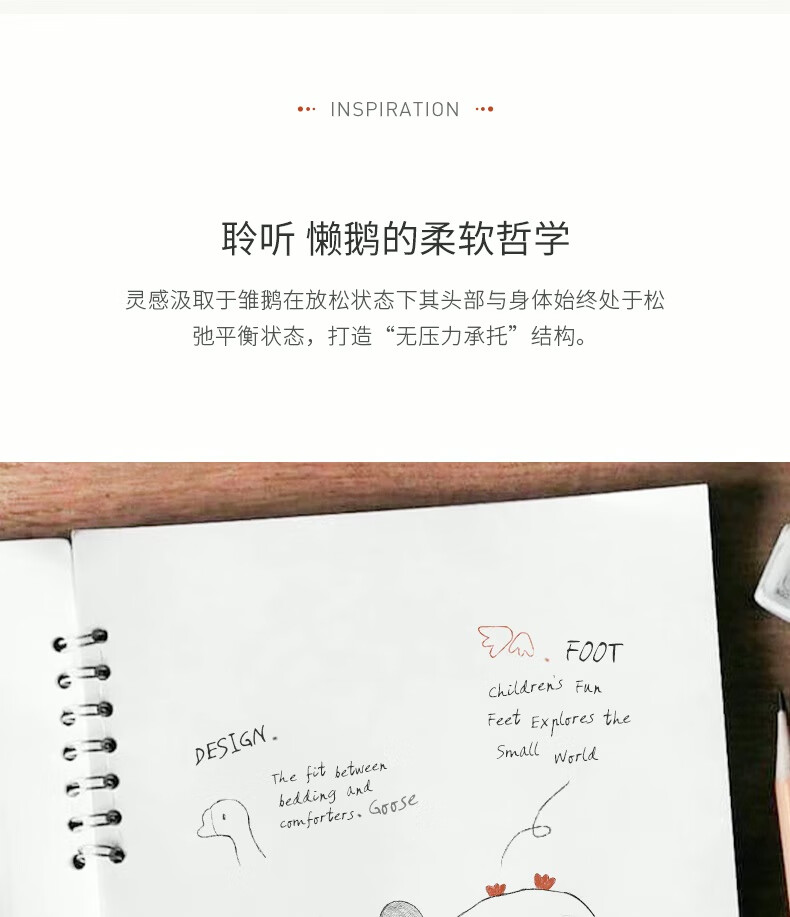 INSPIRATION
聆听 懒鹅的柔软哲学
灵感汲取于雏鹅在放松状态下其头部与身体始终处于松
弛平衡状态，打造“无压力承托”结构。
FOOT
Children's Fun
Feet Explores the
Small World
DESIGN.
The fit between
bedding and
comforters. Goose